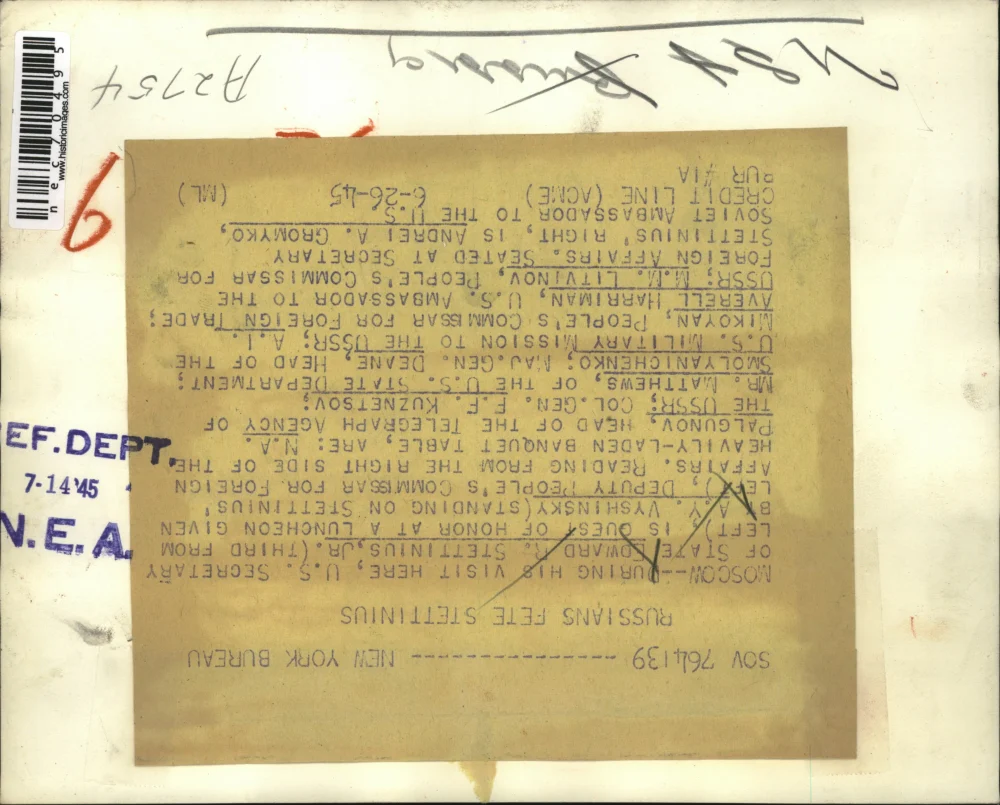 SOV 764139 ------------------ NEW YORK BUREAU
RUSSIANS FETE STETTINIUS
MOSCOW--DURING HIS VISIT HERE, U.S. SECRETARY
OF STATE EDWARD R. STETTINIUS, JR. (THIRD FROM
LEFT) IS GUEST OF HONOR AT A LUNCHEON GIVEN
BY A.Y. VYSHINSKY (STANDING ON STETTINIUS'
LEFT), DEPUTY PEOPLE'S COMMISSAR FOR FOREIGN
AFFAIRS. READING FROM THE RIGHT SIDE OF THE
HEAVILY-LADEN BANQUET TABLE, ARE: N.A.
PALGUNOV, HEAD OF THE TELEGRAPH AGENCY OF
THE USSR; COL. GEN. F.F. KUZNETSOV;
MR. MATTHEWS, OF THE U.S. STATE DEPARTMENT;
SMOLYANCHENKO; MAJ. GEN. DEANE, HEAD OF THE
U.S. MILITARY MISSION TO THE USSR; A.I.
MIKOYAN, PEOPLE'S COMMISSAR FOR FOREIGN TRADE;
AVERELL HARRIMAN, U.S. AMBASSADOR TO THE
USSR; M.M. LITVINOV, PEOPLE'S COMMISSAR FOR
FOREIGN AFFAIRS. SEATED AT SECRETARY
STETTINIUS' RIGHT, IS ANDREI A. GROMYKO,
SOVIET AMBASSADOR TO THE U.S.
CREDIT LINE (ACME) 6-26-45 (ML)
BUR #1A
A2754
EF. DEPT.
7-14'45
N.E.A.
nec70495
www.historicimages.com